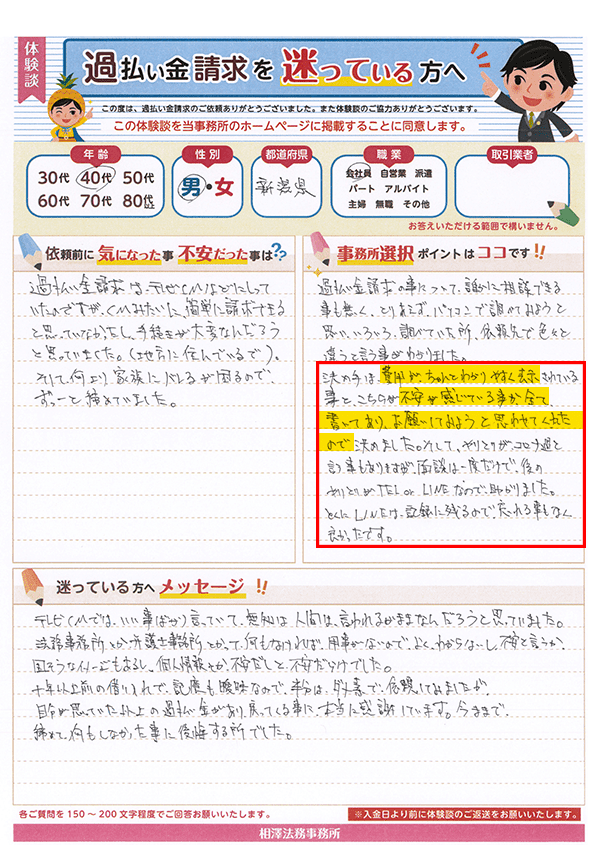 体験談
過払い金請求を迷っている方へ
この度は、過払い金請求のご依頼ありがとうございました。また体験談のご協力ありがとうございます。
この体験談を当事務所のホームページに掲載することに同意します。
年齢
30代 40代 50代
60代 70代 80代以上
性別
男・女
都道府県
新潟県
職業
会社員 自営業 派遣
パート アルバイト
主婦 無職 その他
取引業者
お答えいただける範囲で構いません。
依頼前に気になった事 不安だった事は??
過払い金請求は、テレビCMなどにしって
いたのですが、CMみたいに、簡単に請求できる
と思っていなかたし、手続きが大変なんだろう
と思っていました。(地方に住んでいるで)。
そして何より家族にバレるが困るので、
ずーっと諦めていました。
事務所選択ポイントはココです!!
過払い金請求の事について、誰かに相談できる
事も無く、とりあえず、パソコンで調べておようと
思い、いろいろ、調べていた所、依頼先で色々と
違うと言う事がわかりました。
決め手は、費用が、ちゃんとわかりやすく表示されている
事と、こちらが不安が感じている事が全て、
書いてあり、お願いしておようと思わせてくれた
ので決めました。そして、やりとりが、コロナ過と
言う事もありますが、面談は一度だけで、後の
やりとりがTEL or LINEなので、助かりました。
とくにLINEは、記録に残るので、忘れる事もなく
良かったです。
迷っている方へメッセージ!!
テレビCMでは、いい事ばかり言っていて、無知は人間は、言われるがままなんだろうと思っていました。
法務事務所とか弁護士事務所とかって、何もなければ、用事がないので、よく、わからないし、不安と言うか、
固そうなイメージもあるし、個人情報とか、不安だしと、不安だらけでした。
十年以上前の借り入れで、記憶も曖昧なので、半分は、ダメ素で、依頼してみましたが、
自分が思っていた以上の過払い金があり、戻ってくる事に、本当に感謝しています。今まで、
諦めて、何もしなかった事に後悔する所でした。
各ご質問を150〜200文字程度でご回答お願いいたします。
※入金日より前に体験談のご返送をお願いいたします。
相澤法務事務所